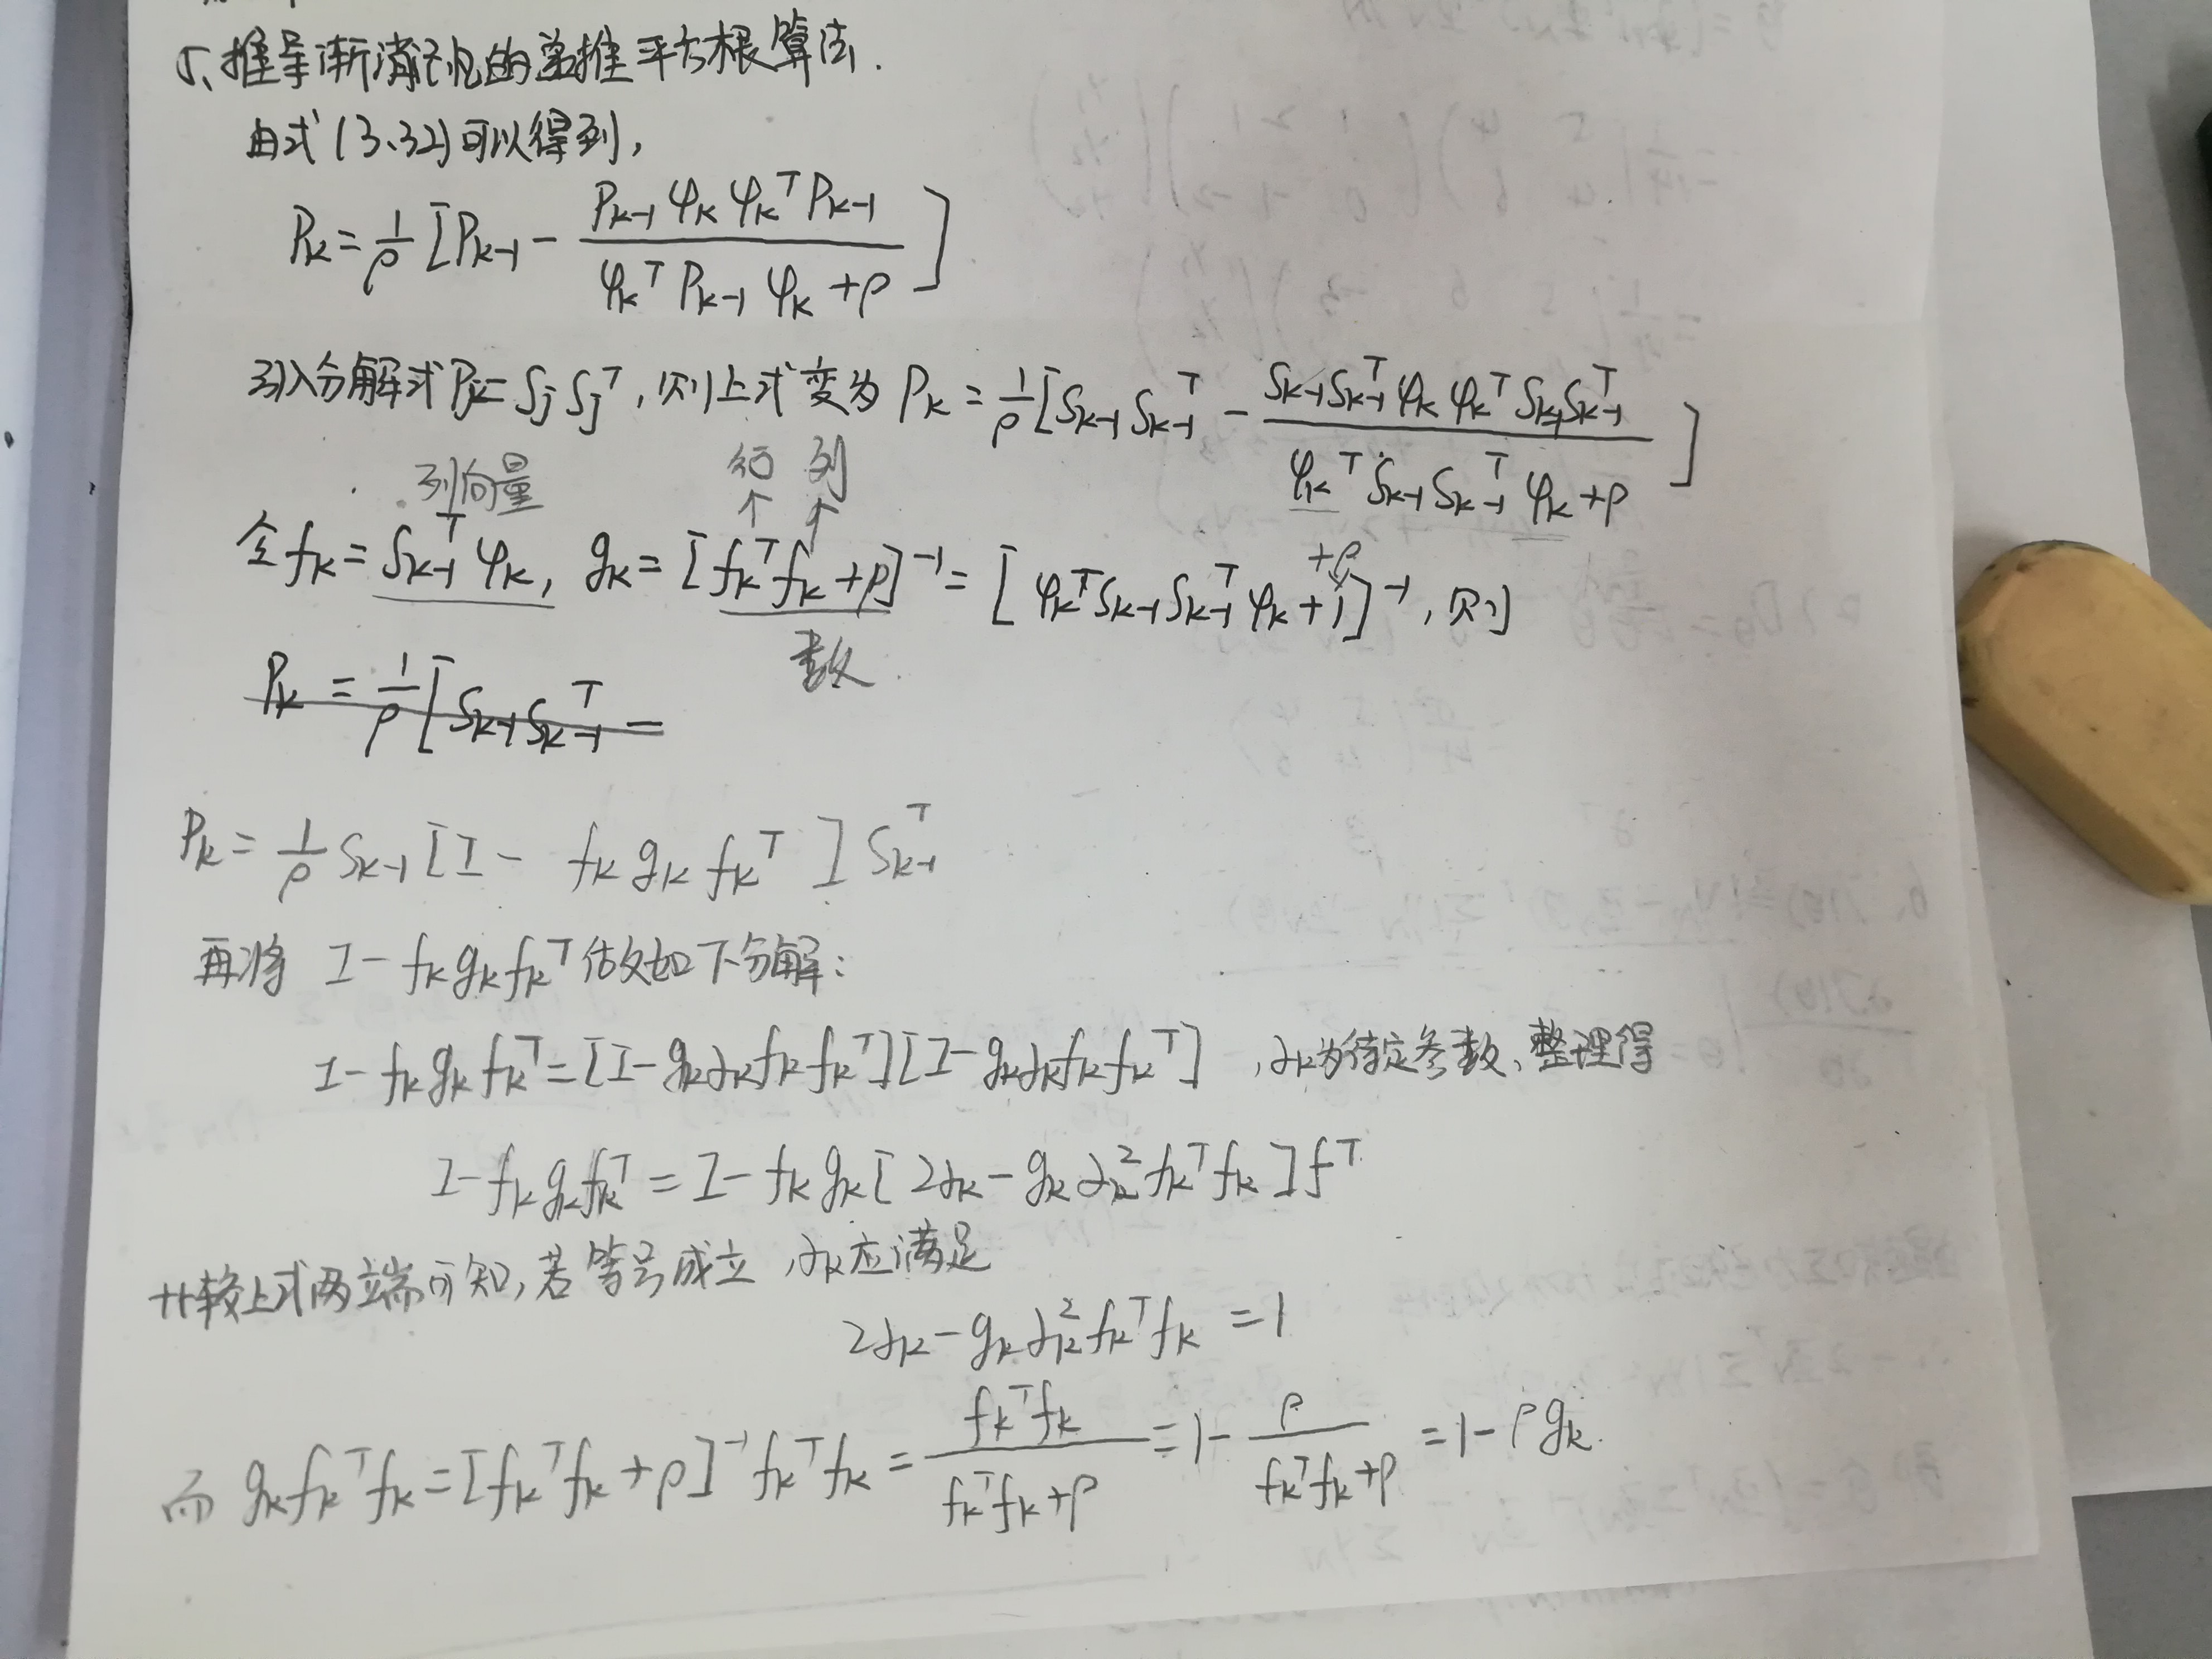 5、推导渐消记忆的递推平方根算法.
由式(3.32)可以得到,
P_k = 1/ρ [P_{k-1} - P_{k-1} φ_k φ_k^T P_{k-1} / (φ_k^T P_{k-1} φ_k + ρ)]
引入分解式P_j = S_j S_j^T, 则上式变为 P_k = 1/ρ [S_{k-1} S_{k-1}^T - S_{k-1} S_{k-1}^T φ_k φ_k^T S_{k-1} S_{k-1}^T / (φ_k^T S_{k-1} S_{k-1}^T φ_k + ρ)]
列向量 行 列
↑ ↑
令 f_k = S_{k-1}^T φ_k, g_k = [f_k^T f_k + ρ]^{-1} = [φ_k^T S_{k-1} S_{k-1}^T φ_k + 1]^{-1}, 则
+ρ
数
P_k = 1/ρ [S_{k-1} S_{k-1}^T =
P_k = 1/ρ S_{k-1} [I - f_k g_k f_k^T] S_{k-1}^T
再将 I - f_k g_k f_k^T 做如下分解:
I - f_k g_k f_k^T = [I - g_k α_k f_k f_k^T][I - g_k α_k f_k f_k^T] , α_k为待定参数, 整理得
I - f_k g_k f_k^T = I - f_k g_k [2α_k - g_k α_k^2 f_k^T f_k] f^T
比较上式两端可知, 若等号成立, α_k应满足
2α_k - g_k α_k^2 f_k^T f_k = 1
而 g_k f_k^T f_k = [f_k^T f_k + ρ]^{-1} f_k^T f_k = f_k^T f_k / (f_k^T f_k + ρ) = 1 - ρ / (f_k^T f_k + ρ) = 1 - ρ g_k.